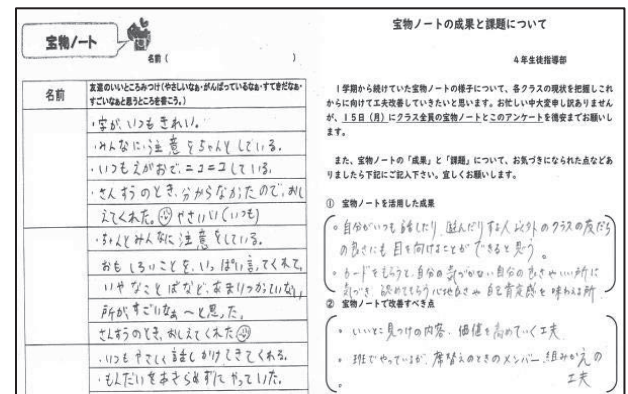 宝物ノート
名前（　　　　　　）
名前
友達のいいところみつけ（やさしいなぁ・がんばっているなぁ・すてきだなぁ・
すごいなぁと思うところを書こう。）
・字が、いつもきれい。
・みんなに注意をちゃんとしている。
・いつもえがおで、ニコニコしている。
・さんすうのとき、分からなかったので、おし
えてくれた。やさしい(いつも)
・ちゃんとみんなに注意をしている。
おもしろいことを、いっぱい言ってくれて、
いやなことばなど、あまりつかっていない
所が、すごいなぁ～と思った。
さんすうのとき、おしえてくれた
・いつもやさしく話しかけしてくれる。
・もんだいをあきらめずにやっていた。
宝物ノートの成果と課題について
４年生徒指導部
１学期から続けていた宝物ノートの様子について、各クラスの現状を把握しこれ
からに向けて工夫改善していきたいと思います。お忙しい中大変申し訳ありません
が、１５日（月）にクラス全員の宝物ノートとこのアンケートを徳安までお願いし
ます。
また、宝物ノートの「成果」と「課題」について、お気づきになられた点などあ
りましたら下記にご記入下さい。宜しくお願いします。
① 宝物ノートを活用した成果
・自分がいつも話したり、遊んだりする人以外のクラスの友だち
の良さにも目を向けることができると思う。
・カードをもらうと、自分の気づかない自分の良さやいい所に
気づき、認めてもらう心地良さや自己肯定感を味わえる所
② 宝物ノートで改善すべき点
・いいとこ見つけの内容、価値を高めていく工夫
・班でやっているが、席替えのときのメンバー、組みかえの
工夫